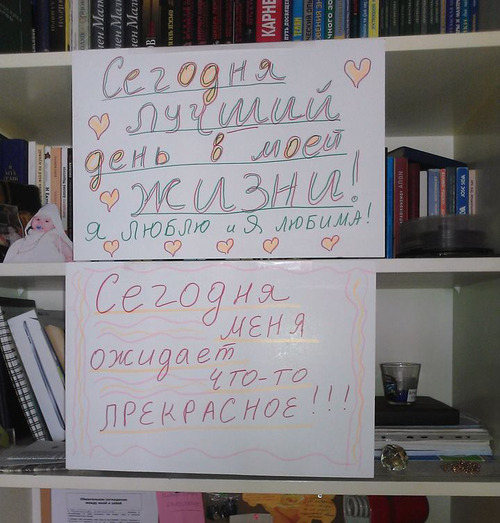 Сегодня
лучший
день в моей
жизни!
Я люблю и я любима!
Сегодня
меня
ожидает
что-то
прекрасное!!!
КАРНЕ